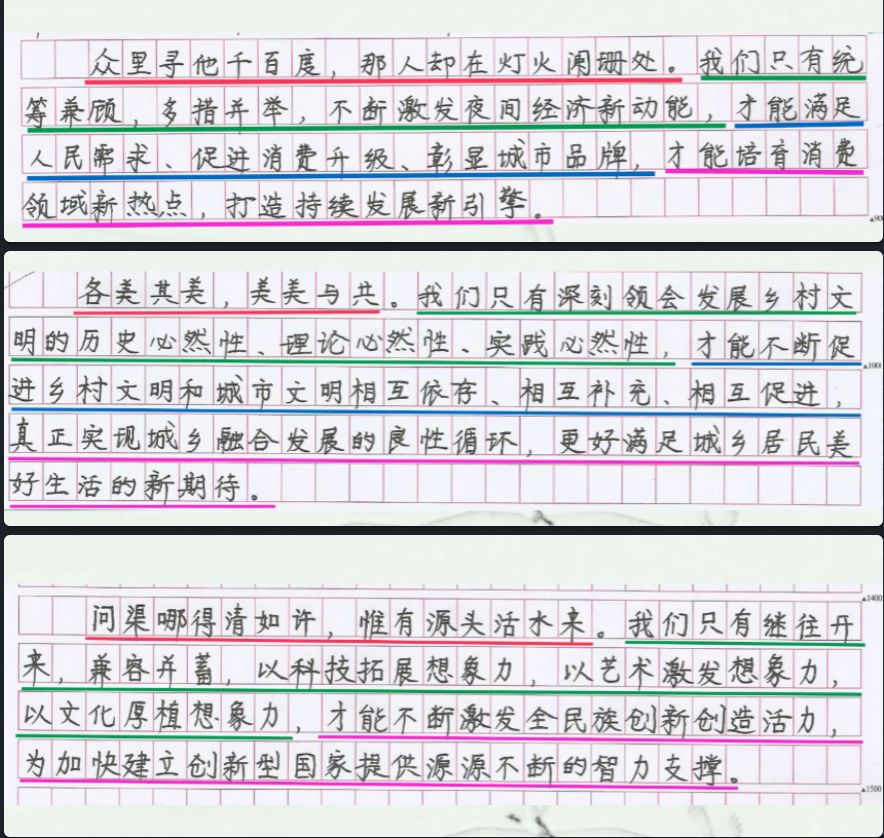 众里寻他千百度，那人却在灯火阑珊处。我们只有统
筹兼顾，多措并举，不断激发夜间经济新动能，才能满足
人民需求、促进消费升级、彰显城市品牌，才能培育消费
领域新热点，打造持续发展新引擎。
各美其美，美美与共。我们只有深刻领会发展乡村文
明的历史必然性、理论必然性、实践必然性，才能不断促
进乡村文明和城市文明相互依存、相互补充、相互促进，
真正实现城乡融合发展的良性循环，更好满足城乡居民美
好生活的新期待。
问渠哪得清如许，惟有源头活水来。我们只有继往开
来，兼容并蓄，以科技拓展想象力，以艺术激发想象力，
以文化厚植想象力，才能不断激发全民族创新创造活力，
为加快建立创新型国家提供源源不断的智力支撑。